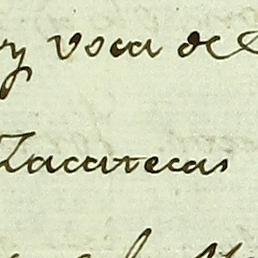 y voca de
Zacatecas